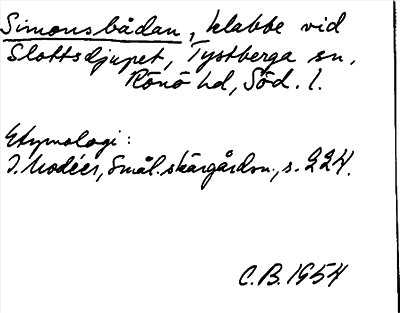 Simonsbådan, klabbe vid
Slottsdjupet, Tystberga sn,
Rönö hd, Söd. l.
Etymologi:
I. Modéer, Smål. skärgårdsn., s. 224.
C.B. 1954